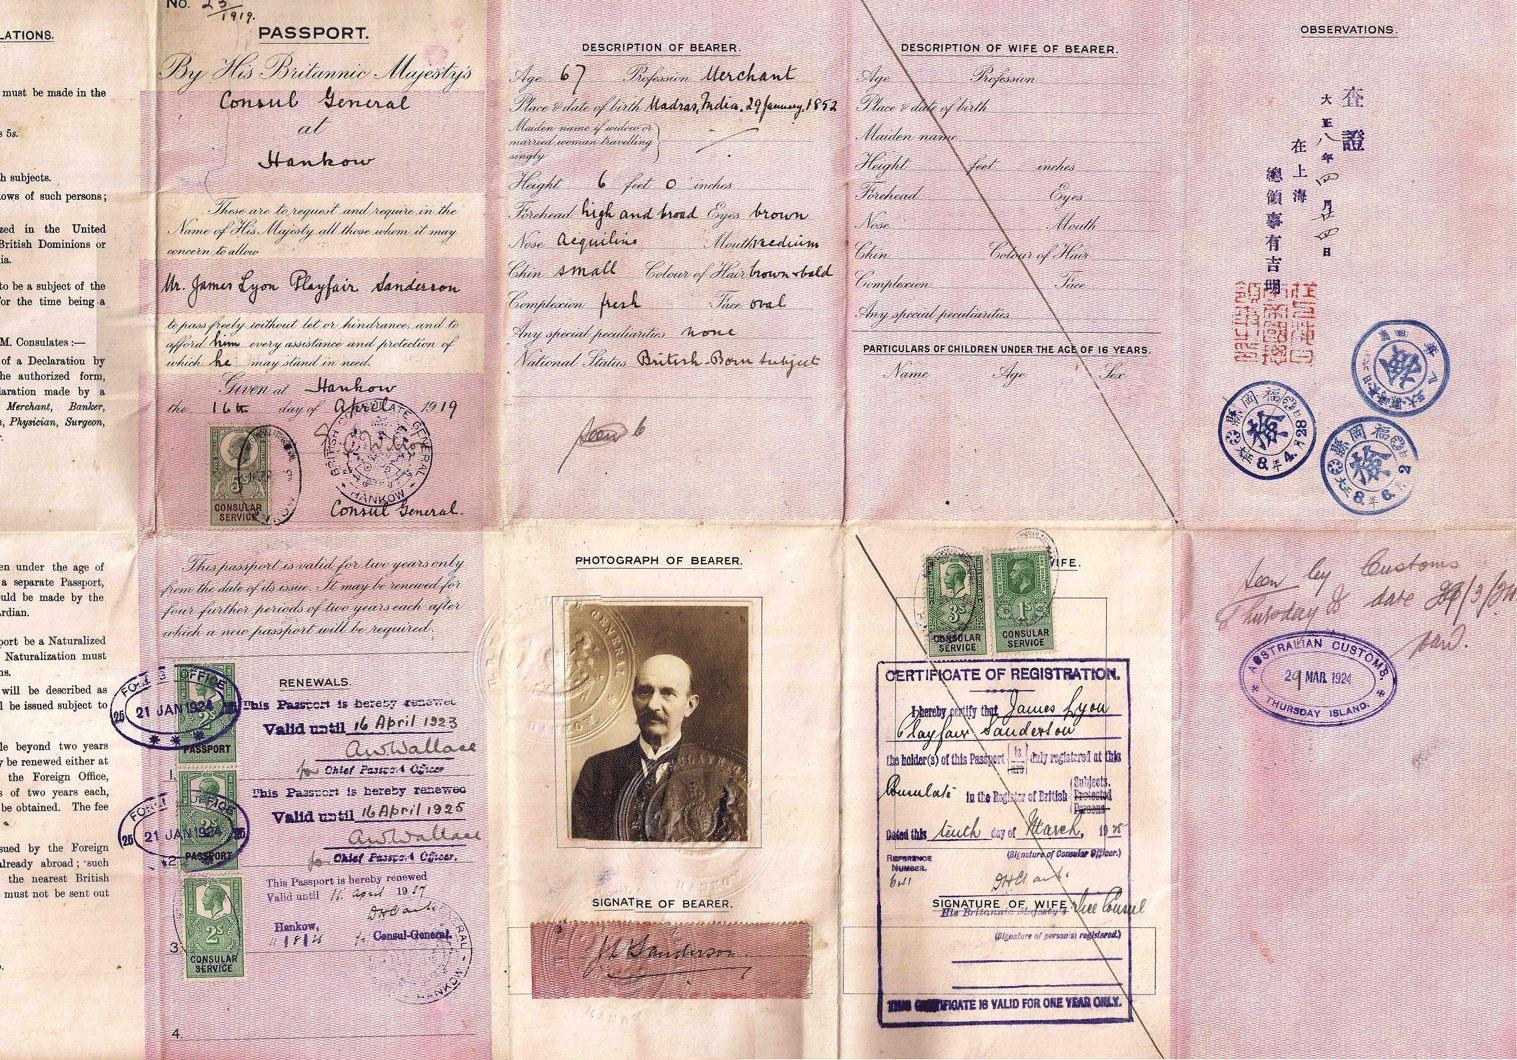 LATIONS.
must be made in the
s 5s.
h subjects.
ows of such persons;
zed in the United
British Dominions or
ia.
to be a subject of the
for the time being a
M. Consulates :—
of a Declaration by
he authorized form,
laration made by a
Merchant, Banker,
n, Physician, Surgeon,
r.
en under the age of
a separate Passport,
ould be made by the
ardian.
port be a Naturalized
Naturalization must
ns.
will be described as
l be issued subject to
le beyond two years
y be renewed either at
the Foreign Office,
s of two years each,
be obtained. The fee
sued by the Foreign
already abroad; such
the nearest British
must not be sent out
No. 23/1919.
PASSPORT.
By His Britannic Majesty's
Consul General
at
Hankow
These are to request and require in the
Name of His Majesty all those whom it may
concern to allow
Mr. James Lyon Playfair Sanderson
to pass freely without let or hindrance, and to
afford him every assistance and protection of
which he may stand in need.
Given at Hankow
the 16th day of April 1919
BRITISH CONSULATE GENERAL
HANKOW
5s
CONSULAR
SERVICE
Consul General.
This passport is valid for two years only
from the date of its issue. It may be renewed for
four further periods of two years each after
which a new passport will be required.
RENEWALS.
FOREIGN OFFICE
21 JAN 1924
2s
PASSPORT
1.
This Passport is hereby renewed
Valid until 16 April 1923
A.W. Wallace
for Chief Passport Officer
FOREIGN OFFICE
21 JAN 1924
2s
PASSPORT
2
This Passport is hereby renewed
Valid until 16 April 1925
A.W. Wallace
for Chief Passport Officer.
2s
CONSULAR
SERVICE
3.
This Passport is hereby renewed
Valid until 16 April 1927
Hankow,
for Consul-General.
HANKOW
4.
DESCRIPTION OF BEARER.
Age 67 Profession Merchant
Place & date of birth Madras, India. 29 January, 1852
Maiden name if widow or
married woman travelling
singly
Height 6 feet 0 inches
Forehead high and broad Eyes brown
Nose Acquiline Mouth medium
Chin small Colour of Hair brown & bald
Complexion fresh Face oval
Any special peculiarities none
National Status British-Born Subject
Seen
PHOTOGRAPH OF BEARER.
SIGNATRE OF BEARER.
J L Sanderson
DESCRIPTION OF WIFE OF BEARER.
Age Profession
Place & date of birth
Maiden name
Height feet inches
Forehead Eyes
Nose Mouth
Chin Colour of Hair
Complexion Face
Any special peculiarities
PARTICULARS OF CHILDREN UNDER THE AGE OF 16 YEARS.
Name Age Sex
WIFE.
3s
CONSULAR
SERVICE
1s
CONSULAR
SERVICE
CERTIFICATE OF REGISTRATION.
I hereby certify that James Lyon
Playfair Sanderson
the holder(s) of this Passport is/are duly registered at this
Consulate in the Register of British Subjects.
Protected
Persons.
Dated this tenth day of March, 19
(Signature of Consular Officer.)
REFERENCE
NUMBER.
SIGNATURE OF WIFE
His Britannic Majesty's Vice Consul
(Signature of person(s) registered.)
THIS CERTIFICATE IS VALID FOR ONE YEAR ONLY.
OBSERVATIONS.
査證
大正八年四月廿四日
在上海
總領事有吉明
福岡縣
檢
大正8年4.28
福岡縣
檢
大正8年6月2日
檢
Seen by Customs
Thursday Is date 29/3/24
AUSTRALIAN CUSTOMS.
29 MAR 1924
THURSDAY ISLAND.